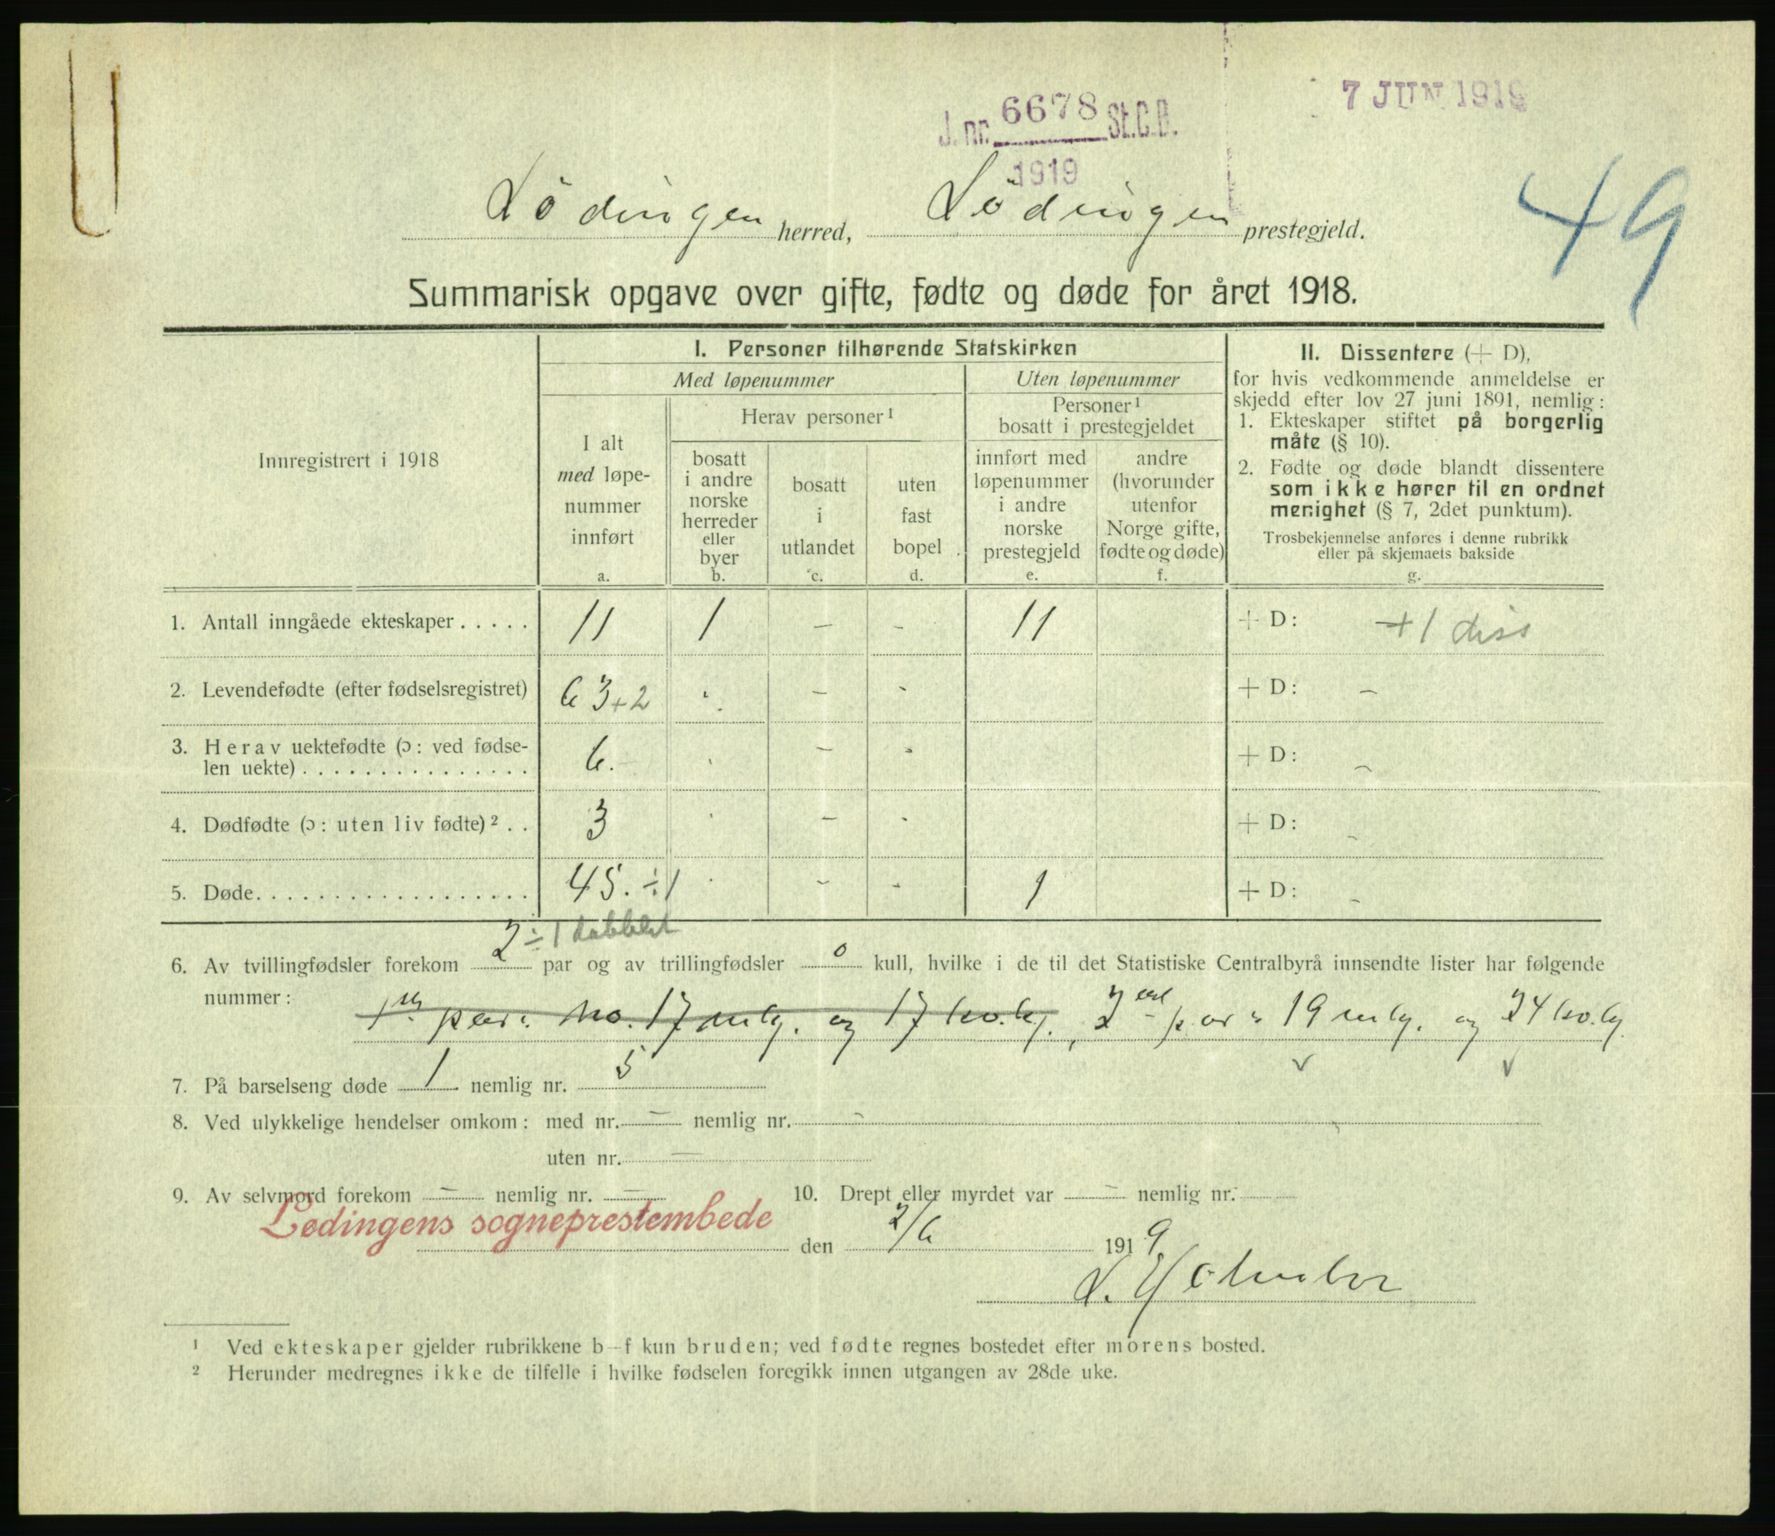 J. nr. 6678 St.C.B.
1919
7 JUN 1919
49
Lödingen herred, Lödingen prestegjeld.
Summarisk opgave over gifte, fødte og døde for året 1918.
Innregistrert i 1918
I. Personer tilhørende Statskirken
Med løpenummer
Uten løpenummer
I alt
med løpe-
nummer
innført
a.
Herav personer¹
bosatt
i andre
norske
herreder
eller
byer
b.
bosatt
i
utlandet
c.
uten
fast
bopel
d.
Personer¹
bosatt i prestegjeldet
innført med
løpenummer
i andre
norske
prestegjeld
e.
andre
(hvorunder
utenfor
Norge gifte,
fødte og døde)
f.
II. Dissentere (+ D),
for hvis vedkommende anmeldelse er
skjedd efter lov 27 juni 1891, nemlig:
1. Ekteskaper stiftet på borgerlig
måte (§ 10).
2. Fødte og døde blandt dissentere
som ikke hører til en ordnet
menighet (§ 7, 2det punktum).
Trosbekjennelse anføres i denne rubrikk
eller på skjemaets bakside
g.
1. Antall inngåede ekteskaper ..... 11 1 – – 11 + D: +1 diss
2. Levendefødte (efter fødselsregistret) 63+2 – – + D: –
3. Herav uektefødte (ɔ: ved fødse-
len uekte) ............... 6. – – + D: –
4. Dødfødte (ɔ: uten liv fødte)² .. 3 – – + D: –
5. Døde. ................. 45. ÷1 – – 1 + D: –
6. Av tvillingfødsler forekom 2 ÷1 dobblet par og av trillingfødsler 0 kull, hvilke i de til det Statistiske Centralbyrå innsendte lister har følgende
nummer: 1ste par: No. 17 mlg. og 17 kv.lg., 2det par: 19 mlg. og 24 kv.lg.
7. På barselseng døde 1 nemlig nr. 5
8. Ved ulykkelige hendelser omkom: med nr. – nemlig nr. –
uten nr. –
9. Av selvmord forekom – nemlig nr. – 10. Drept eller myrdet var – nemlig nr.
Lødingens sogneprestembede den 2/6 1919
¹ Ved ekteskaper gjelder rubrikkene b–f kun bruden; ved fødte regnes bostedet efter morens bosted.
² Herunder medregnes ikke de tilfelle i hvilke fødselen foregikk innen utgangen av 28de uke.